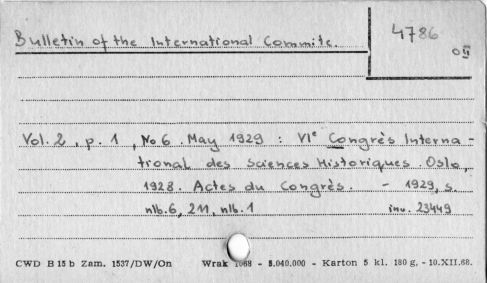 Bulletin of the International Commite.
4786
OII
Vol. 2, p. 1, No 6. May 1929 : VIe Congrès Interna-
tional des Sciences Historiques. Oslo,
1928. Actes du Congrès. - 1929, s.
nlb. 6, 211, nlb. 1
inv. 23449
CWD B 15 b Zam. 1537/DW/On Wrak 1068 - 5.040.000 - Karton 5 kl. 180 g. - 10.XII.68.